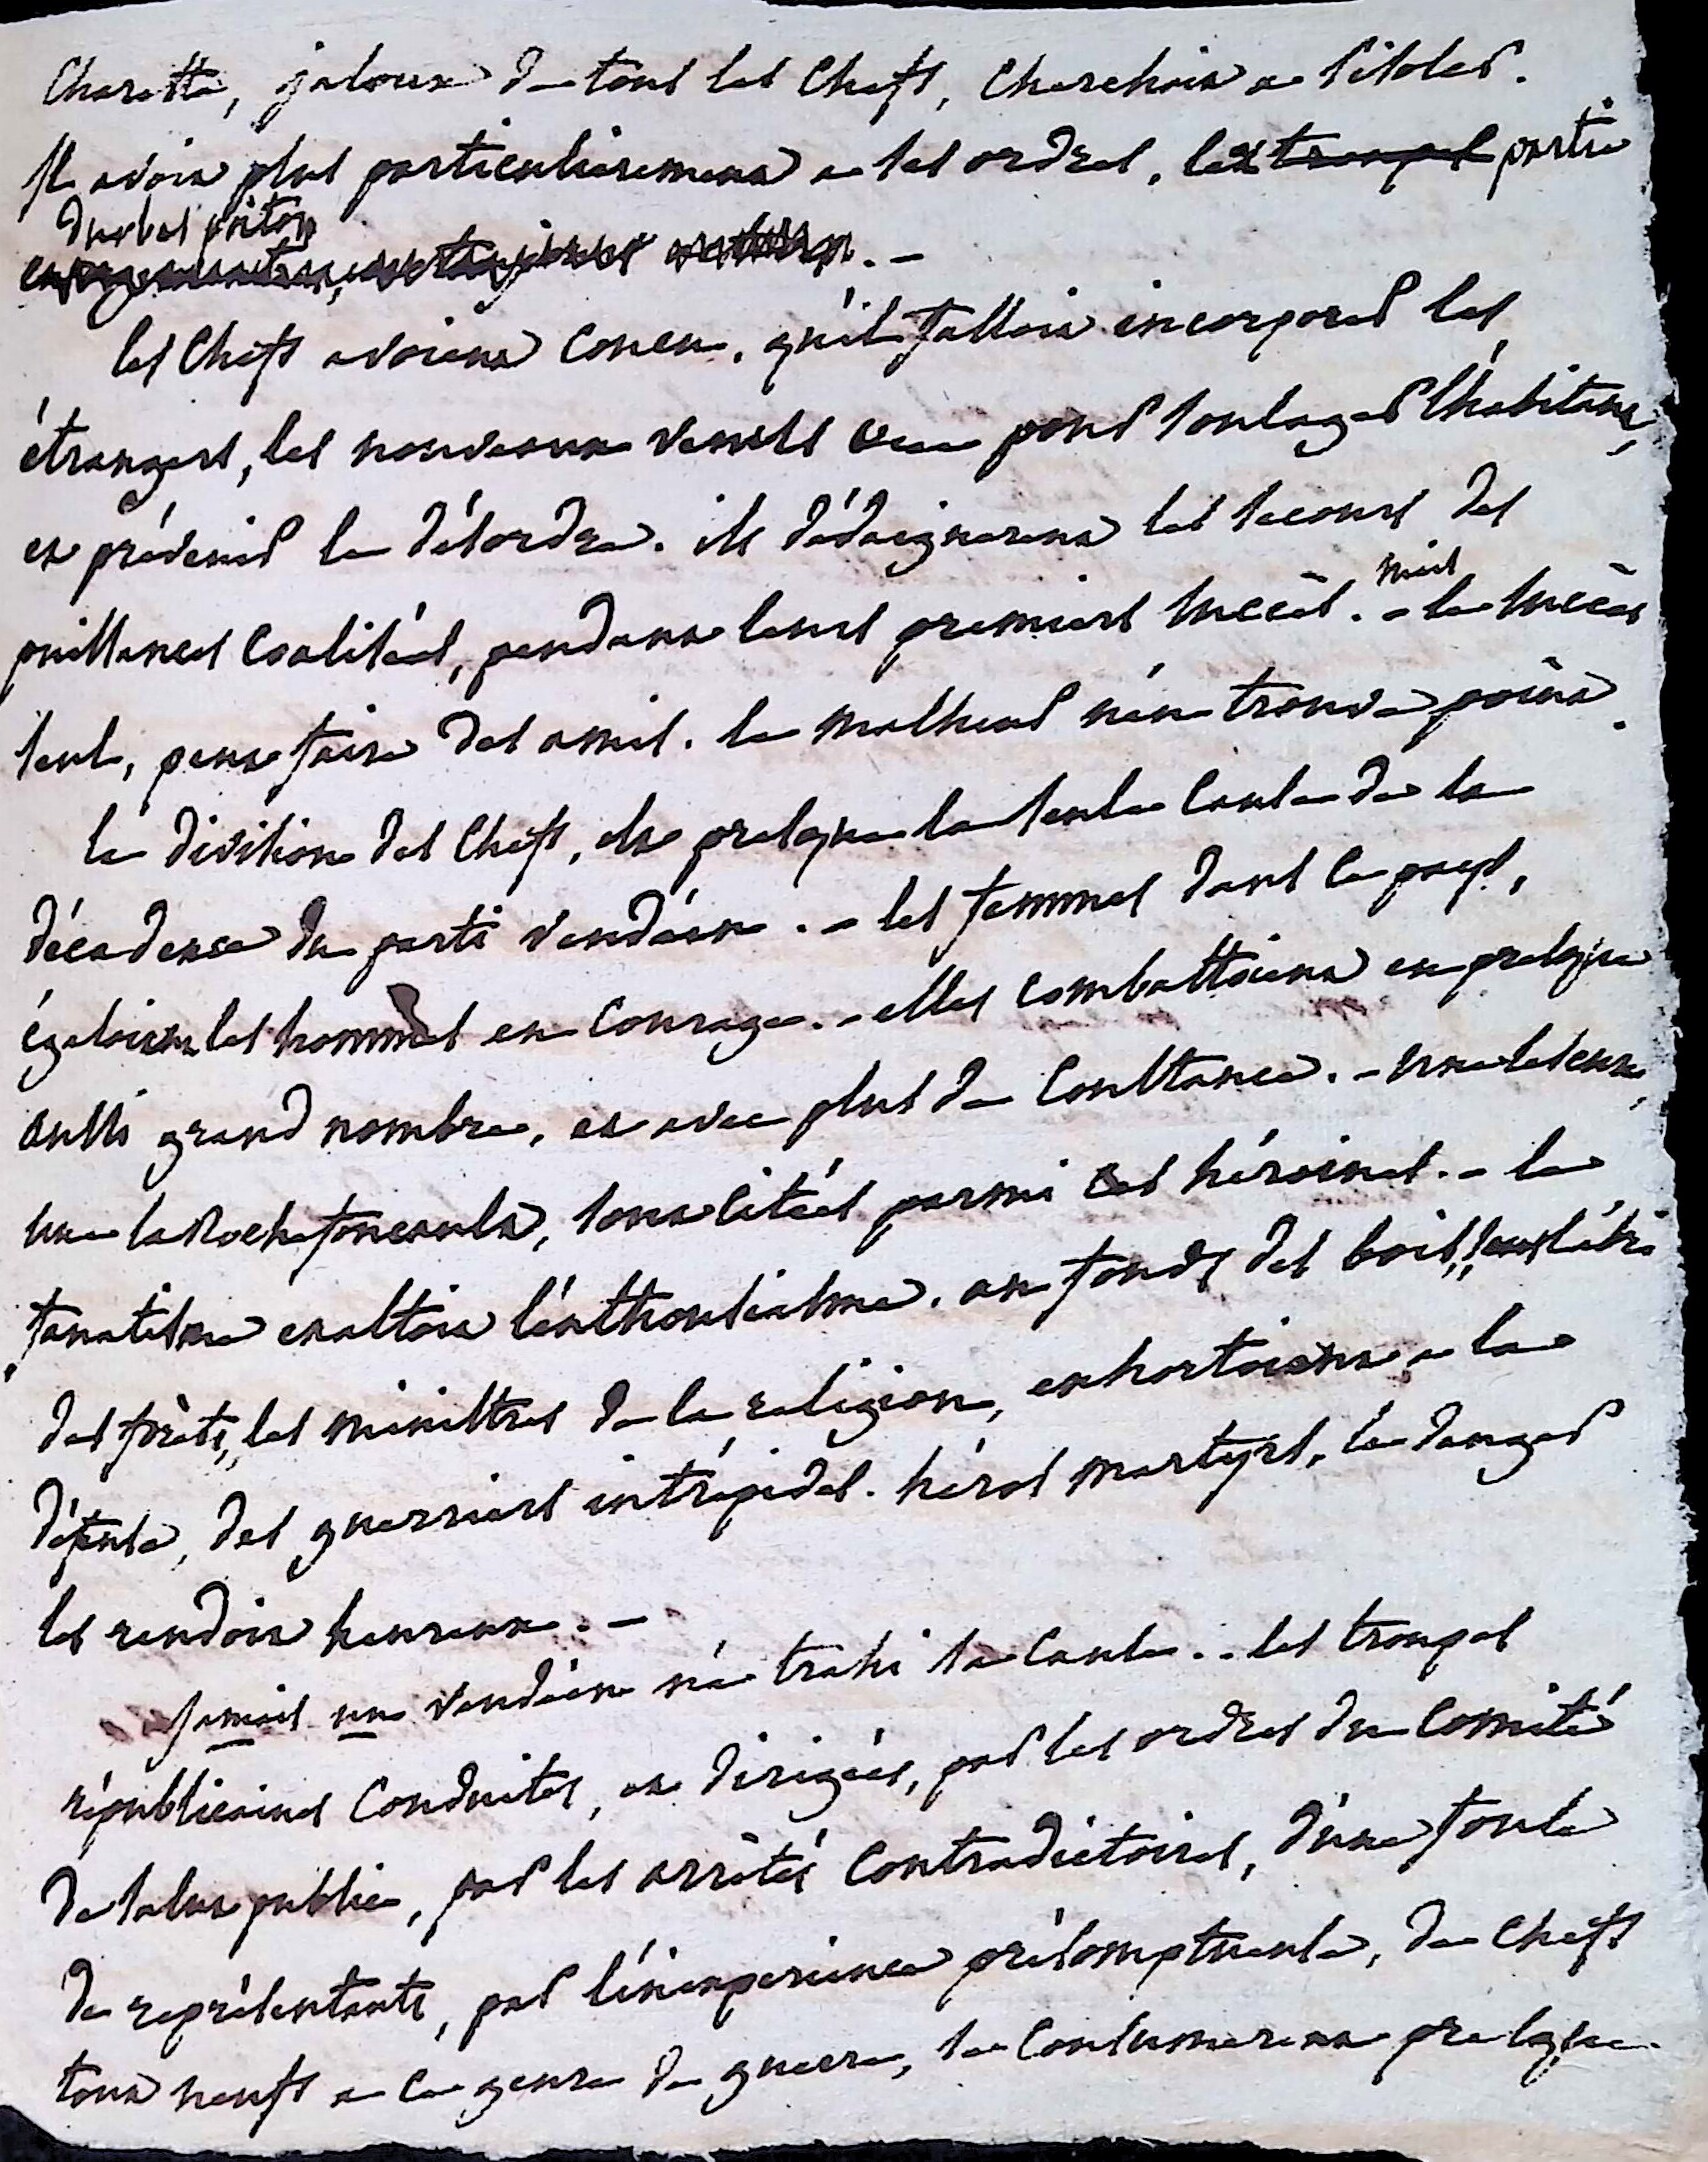 Charette, jaloux de tous les Chefs, Cherchoit a s'isoler.
Il avoit plus particulierement a ses ordres, les troupes partie
du bas poitou
les Chefs avoient Concu, qu'il falloit incorporer les
étrangers, les nouveaux venus pour soulager l'habitant,
et prévenir le désordre. ils dédaignerent les secours des
puissances Coalisées, pendant leurs premiers succès. - mais le succès
seul, peut faire des amis. le malheur n'en trouve point.
la division des Chefs, est presque la seule Cause de la
décadence du parti vendéen. - les femmes dans ce pays,
égaloient les hommes en Courage. - elles combattoient en presque
aussi grand nombre, et avec plus de Constance. - une lescure,
une la Rochefoucault, sont citées parmi ces héroines. - le
fanatisme exaltoit l'enthousiasme. au fonds des bois, sous l'abri
des forêts, les ministres de la religion, exhortoient a la
défense, des guerriers intrépides. héros martyrs, le danger
les rendoit heureux. -
Jamais un vendéen n'a trahi sa Cause. - les troupes
républicaines Conduites, et dirigées, par les ordres du Comité
de salut public, par les arrêtés Contradictoires, d'une foule
de représentants, par l'inexperience présomptueuse, de Chefs
tout neufs a ce genre de guerre, se Consumerent presque